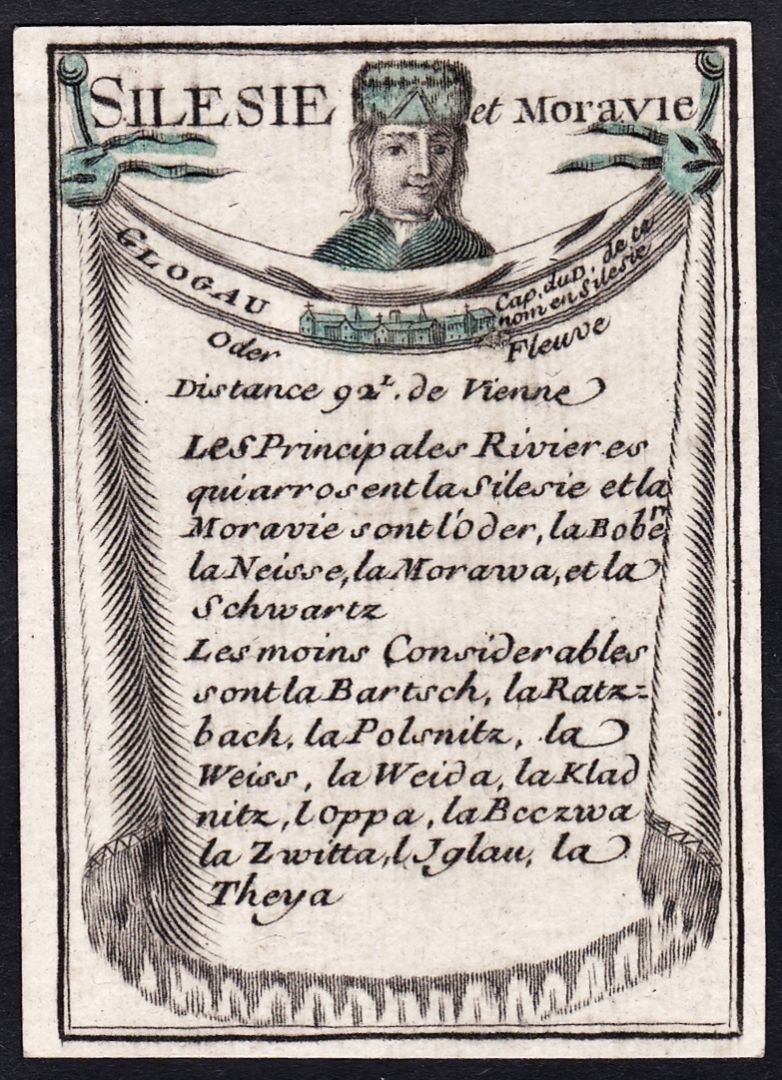 SILESIE et MORAVIE
GLOGAU
Cap. du D. de ce
nom en Silesie
Oder Fleuve
Distance 92 L. de Vienne
Les Principales Rivieres
qui arrosent la Silesie et la
Moravie sont l'Oder, la Bober,
la Neisse, la Morawa, et la
Schwartz
Les moins Considerables
sont la Bartsch, la Ratz=
bach, la Polsnitz, la
Weiss, la Weida, la Klad
nitz, l Oppa, la Beczwa
la Zwitta, l Jglau, la
Theya